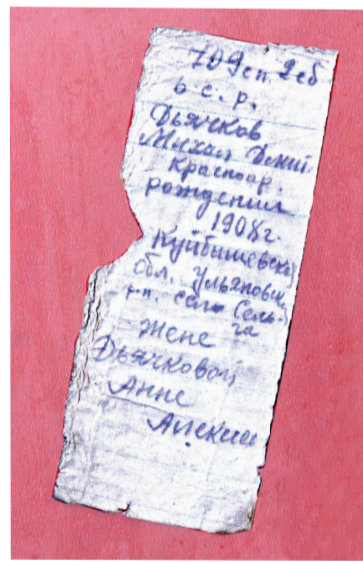 709 сп. 2 сб
6 с. р.
Дьячков
Михаи Дмит.
Красноар.
рождения
1908 г.
Куйбышевска
Обл. Ульяновск
р-н. село Сель-
га
Жене
Дьячковой
Анне
Алексе